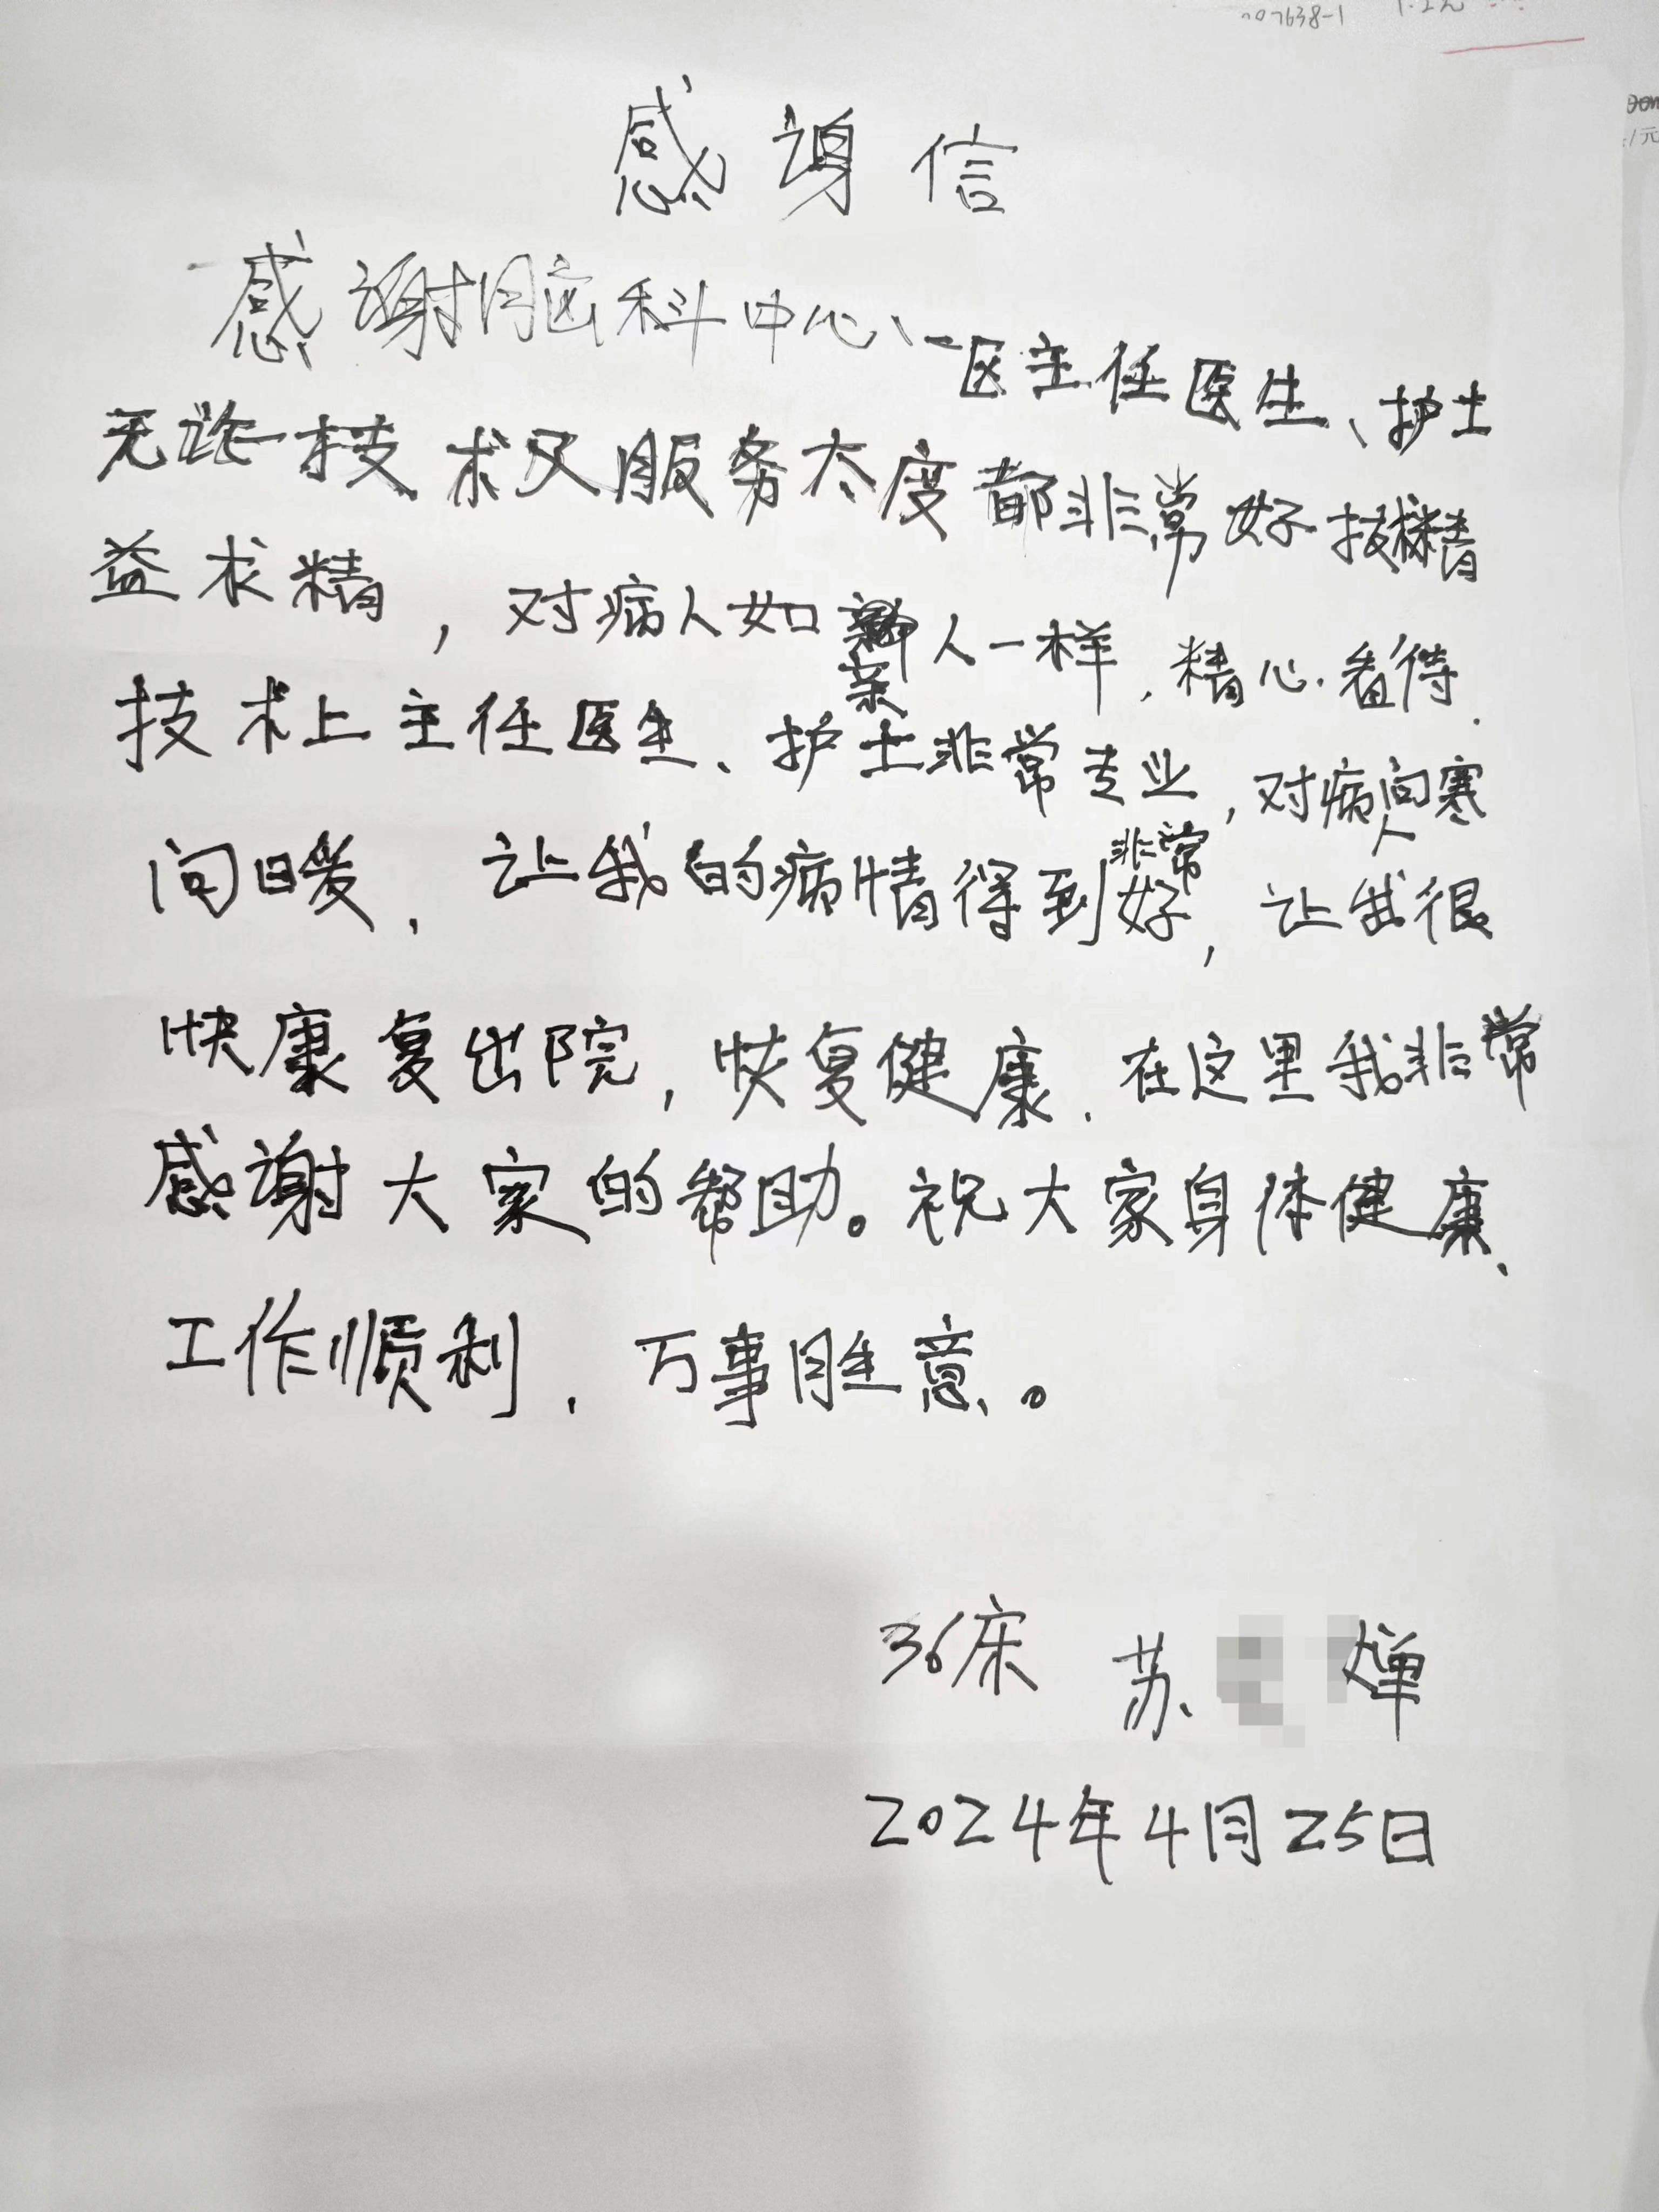 007638-1
感谢信
感谢脑科中心、一区主任医生、护士
无论技术又服务太度都非常好技术精
益求精，对病人如亲人一样，精心看待.
技术上主任医生、护士非常专业，对病人问寒
问暖，让我的病情得到非常好，让我很
快康复出院，恢复健康.在这里我非常
感谢大家的帮助。祝大家身体健康、
工作顺利，万事胜意。
36床 苏 婵
2024年4月25日